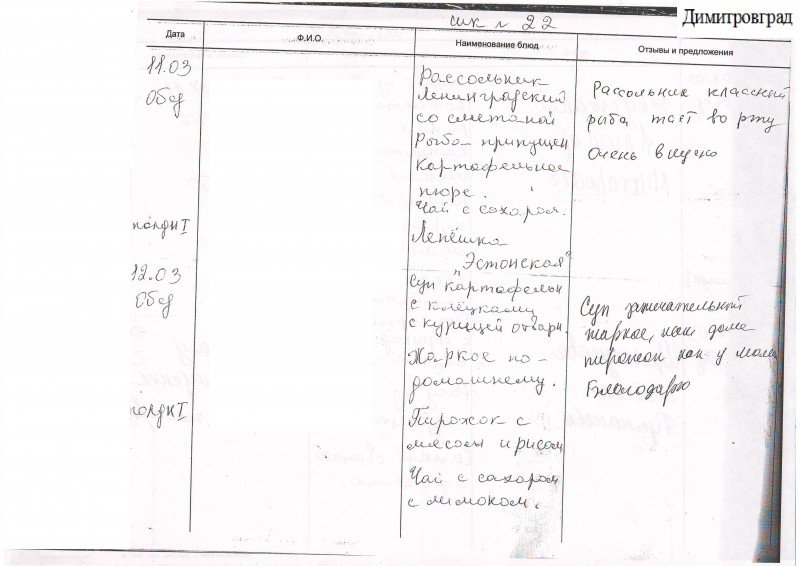 Димитровград
шк № 22
Дата
Ф.И.О.
Наименование блюд
Отзывы и предложения
11.03
Обед
Рассольник
Ленинградский
со сметаной
Рыба припущен
Картофельное
пюре.
Чай с сахаром.
Рассольник классный
рыба тает во рту
Очень вкусно
полдн I
Лепёшка
"Эстонская"
12.03
Обед
Суп картофельн
с клёцками
с курицей отварн.
Жаркое по-
домашнему.
Суп замечательный
жаркое, как дома
пирожок как у мамы
Благодарю
полдн I
Пирожок с
мясом и рисом
Чай с сахаром
с лимоном.